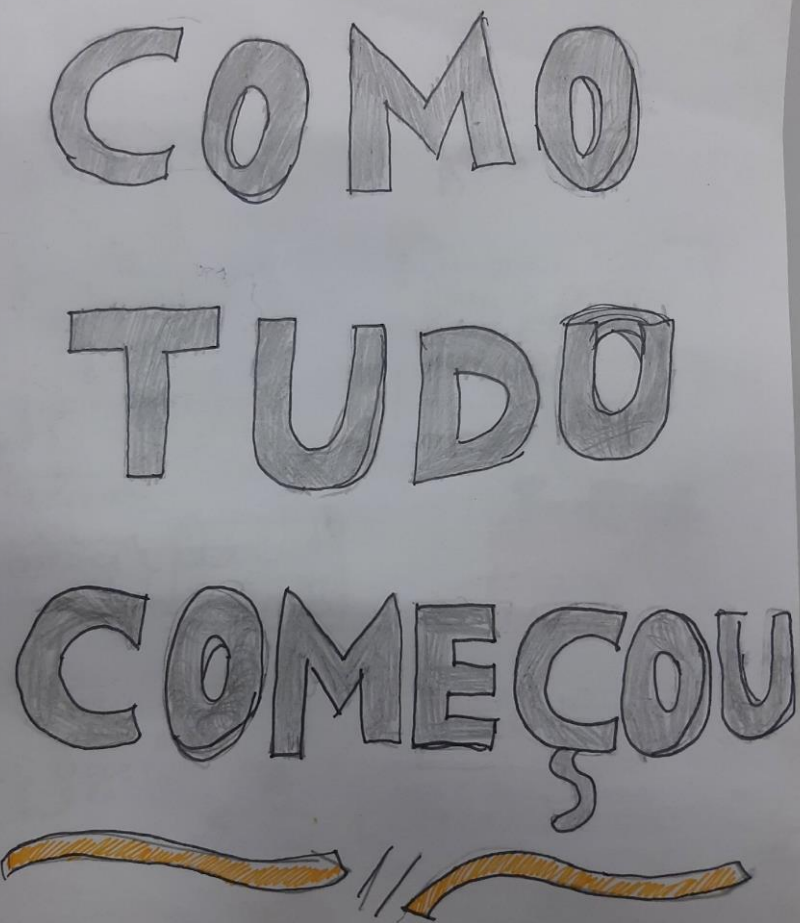 COMO
TUDO
COMEÇOU